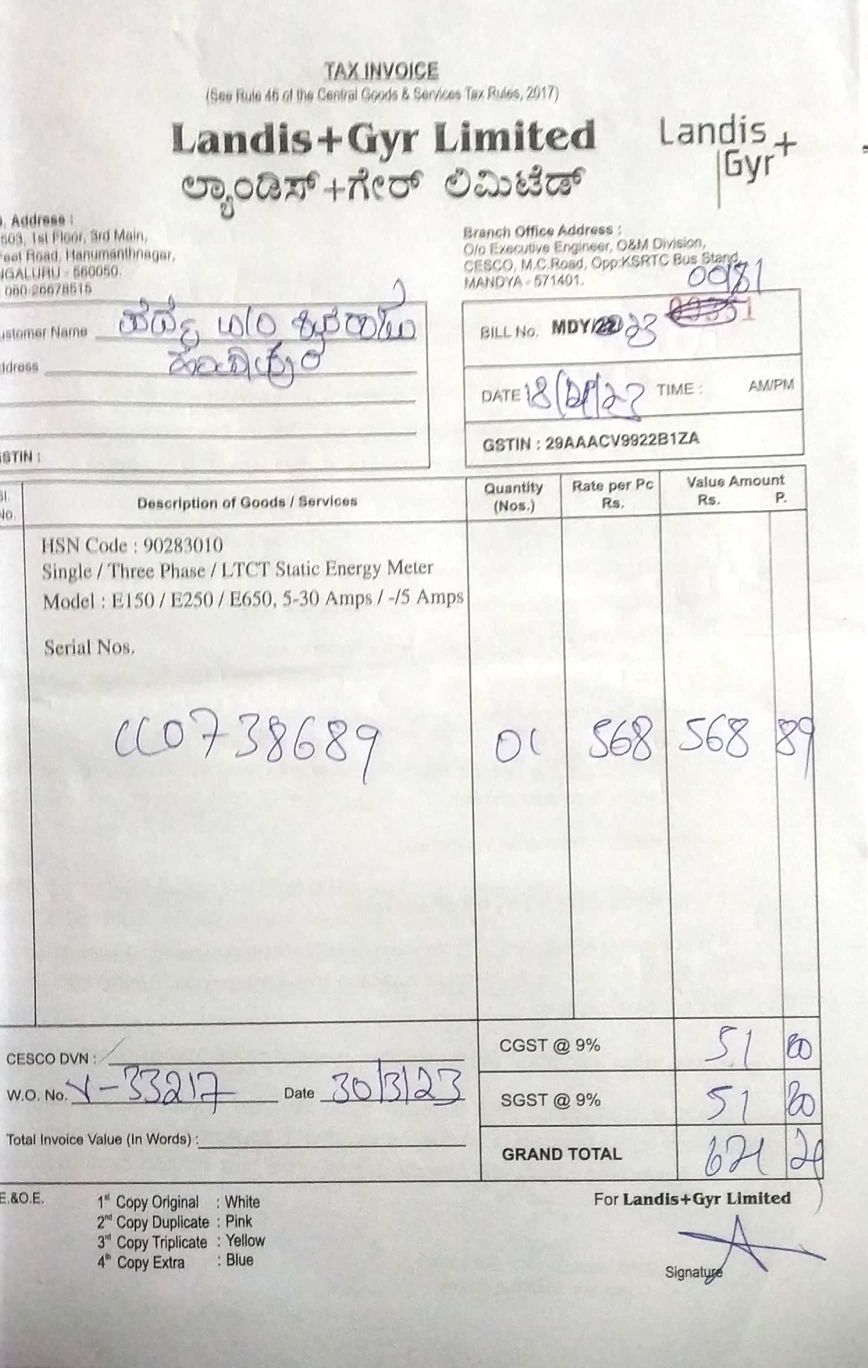 TAX INVOICE
(See Rule 46 of the Central Goods & Services Tax Rules, 2017)
Landis+Gyr Limited
Landis+
Gyr
ಲ್ಯಾಂಡಿಸ್+ಗೇರ್ ಲಿಮಿಟೆಡ್
Address :
503, 1st Floor, 3rd Main,
Road, Hanumanthnagar,
560050.
080-26678615
Branch Office Address :
O/o Executive Engineer, O&M Division,
CESCO, M.C.Road, Opp:KSRTC Bus Stand,
MANDYA - 571401.
Name
BILL No. MDY/22 23
DATE 18/ /23 TIME : AM/PM
GSTIN : 29AAACV9922B1ZA
No. Description of Goods / Services Quantity (Nos.) Rate per Pc Rs. Value Amount Rs. P.
HSN Code : 90283010
Single / Three Phase / LTCT Static Energy Meter
Model : E150 / E250 / E650, 5-30 Amps / -/5 Amps
Serial Nos.
CC0738689 01 568 568 89
CGST @ 9% 51 20
CESCO DVN :
W.O. No. Y-33217 Date 30/3/23
SGST @ 9% 51 20
Total Invoice Value (In Words) :
GRAND TOTAL 671
E.&O.E.
1st Copy Original : White
2nd Copy Duplicate : Pink
3rd Copy Triplicate : Yellow
4th Copy Extra : Blue
For Landis+Gyr Limited
Signature